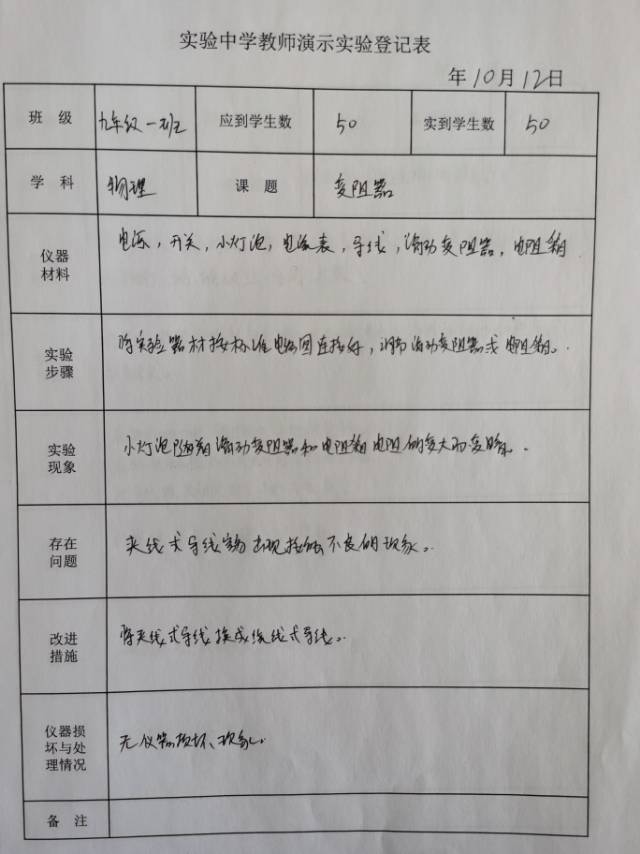 实验中学教师演示实验登记表
年10月12日
班 级 九年级一班 应到学生数 50 实到学生数 50
学 科 物理 课 题 变阻器
仪器材料 电源,开关,小灯泡,电流表,导线,滑动变阻器,电阻箱
实验步骤 将实验器材按标准电路图连接好,调节滑动变阻器或电阻箱。
实验现象 小灯泡随着滑动变阻器和电阻箱电阻的变大而变暗。
存在问题 夹线式导线容易出现接触不良的现象。
改进措施 将夹线式导线换成绕线式导线。
仪器损坏与处理情况 无仪器损坏现象。
备 注